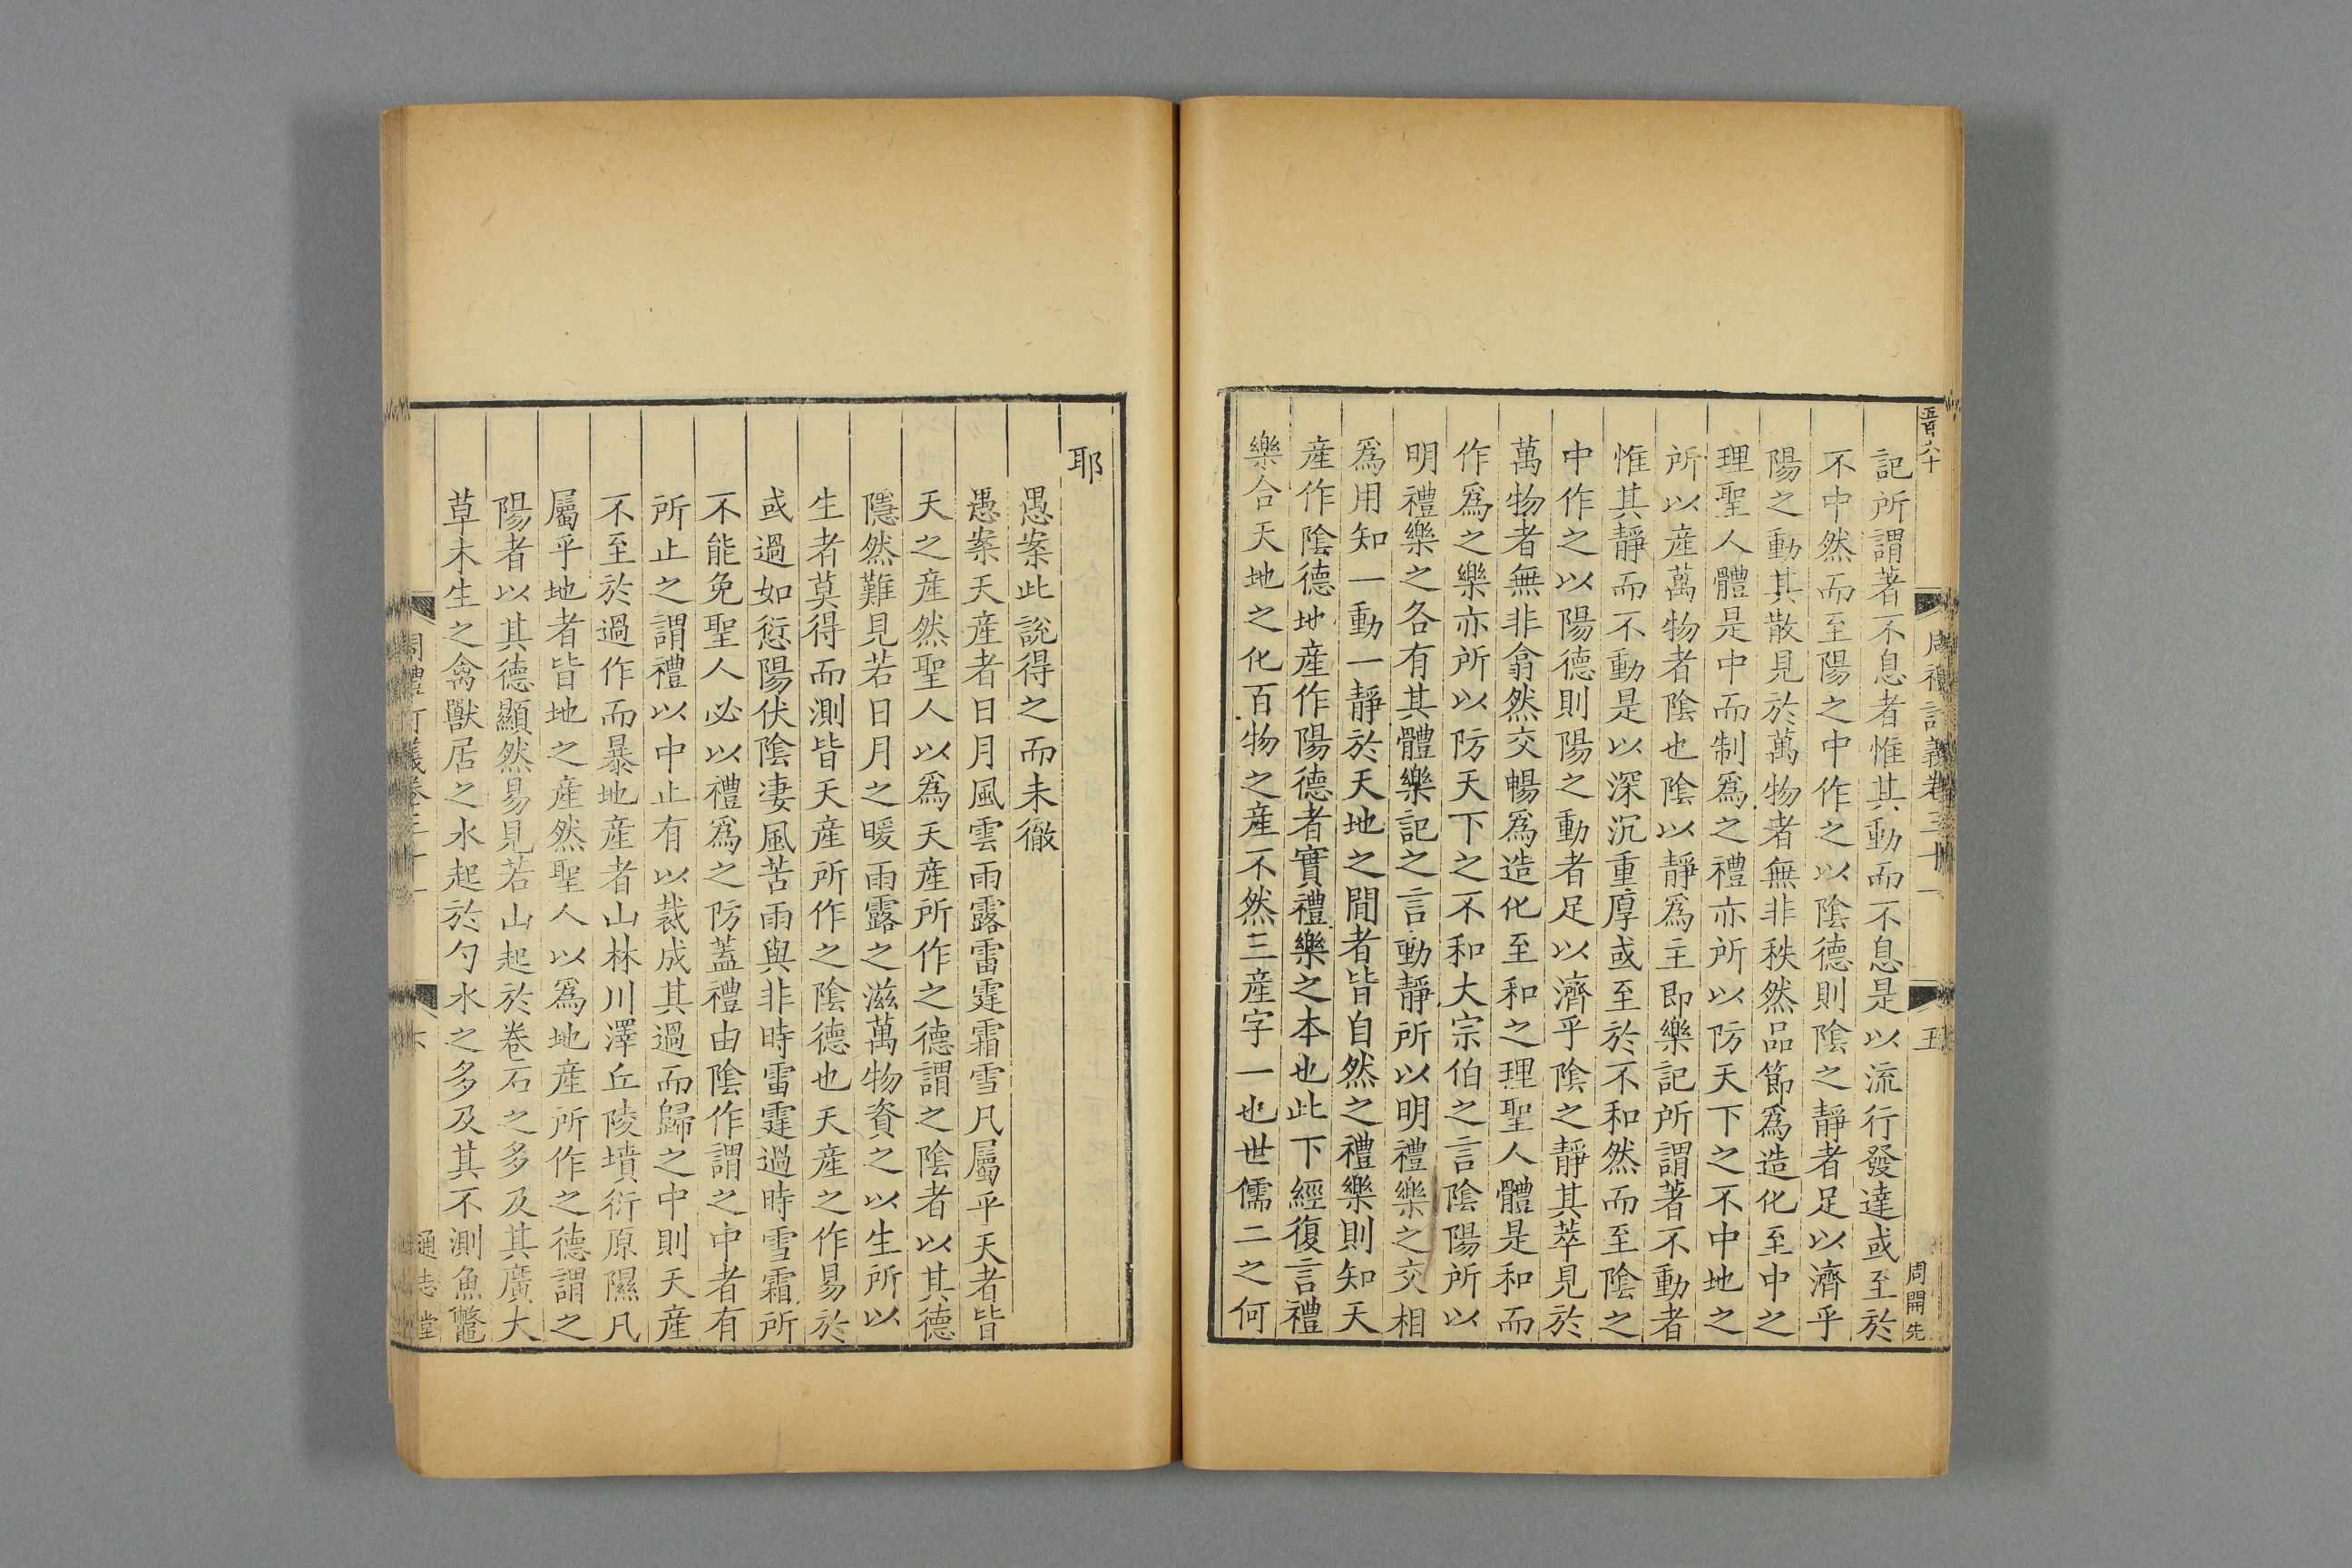 記所謂著不息者惟其動而不息是以流行發達或至於
不中然而至陽之中作之以陰德則陰之靜者足以濟乎
陽之動其散見於萬物者無非秩然品節爲造化至中之
理聖人體是中而制爲之禮亦所以防天下之不中地之
所以産萬物者陰也陰以靜爲主即樂記所謂著不動者
惟其靜而不動是以深沉重厚或至於不和然而至陰之
中作之以陽德則陽之動者足以濟乎陰之靜其萃見於
萬物者無非翕然交暢爲造化至和之理聖人體是和而
作爲之樂亦所以防天下之不和大宗伯之言陰陽所以
明禮樂之各有其體樂記之言動靜所以明禮樂之交相
爲用知一動一靜於天地之閒者皆自然之禮樂則知天
産作陰德地産作陽德者實禮樂之本也此下經復言禮
樂合天地之化百物之産不然三産字一也世儒二之何
周開先
五
耶
愚案此說得之而未徹
愚案天産者日月風雲雨露雷霆霜雪凡屬乎天者皆
天之産然聖人以爲天産所作之德謂之陰者以其德
隱然難見若日月之暖雨露之滋萬物資之以生所以
生者莫得而測皆天産所作之陰德也天産之作易於
或過如愆陽伏陰凄風苦雨與非時雷霆過時雪霜所
不能免聖人必以禮爲之防蓋禮由陰作謂之中者有
所止之謂禮以中止有以裁成其過而歸之中則天産
不至於過作而暴地産者山林川澤丘陵墳衍原隰凡
屬乎地者皆地之産然聖人以爲地産所作之德謂之
陽者以其德顯然易見若山起於卷石之多及其廣大
草木生之禽獸居之水起於勺水之多及其不測魚鼈
通志堂